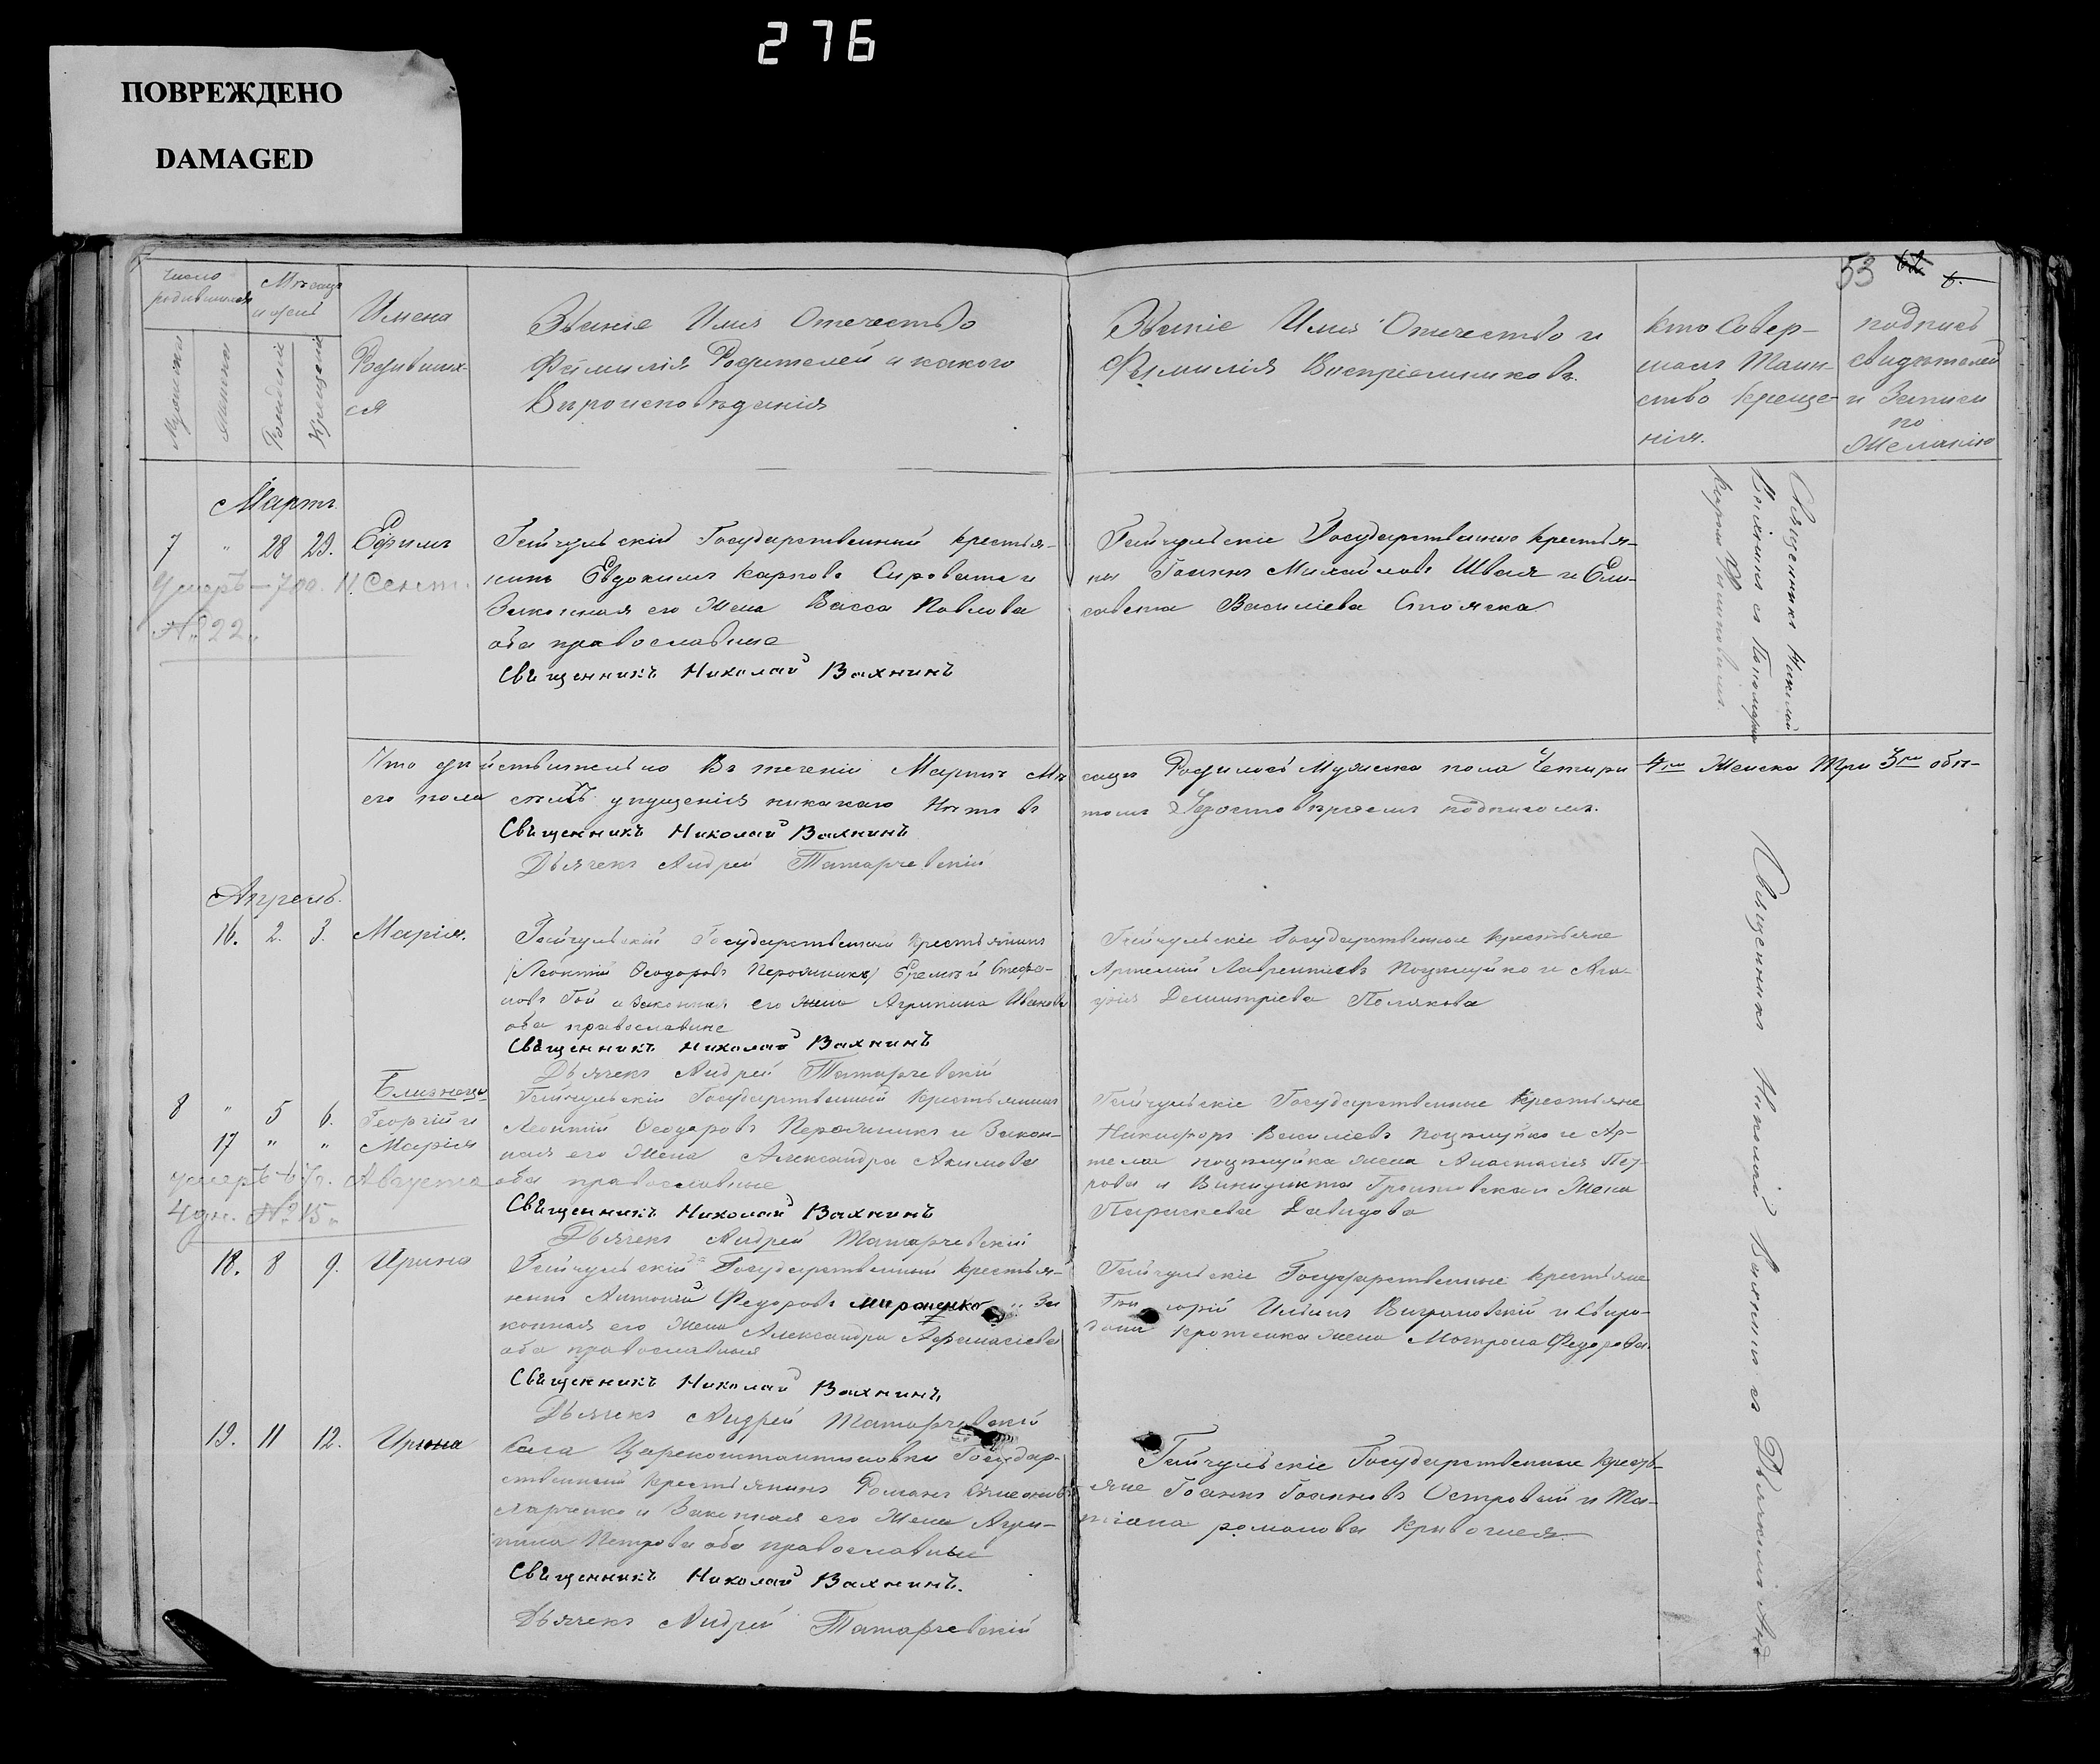 276
ПОВРЕЖДЕНО
DAMAGED
53
Число родившихся
Мѣсяцъ и день
Имена Родивших-ся
Званіе Имя Отечество
Фамилія Родителей и какого
Вѣроисповѣданія
Званіе Имя Отечество и
Фамилія Воспріемниковъ
Кто Совер-
шалъ Таин-
ство Креще-
нія.
подпись
свидѣтелей
и Записи
по
Желанію
Мужеска
Женска
Рожденій
Крещеній
Мартъ
7 " 28 29. Ефимъ
Умеръ 11 Сент.
№ 22.
Гайчульскій Государственный крестья-
нинъ Евдокимъ Карповъ Сировата и
Законная его Жена Васса Павлова
оба православные
Священникъ Николай Вахнинъ
Гайчульскіе Государственные крестья-
ны Іоаннъ Михайловъ Швая и Ели-
савета Василіева Стояска
Священникъ Николай
Вахнинъ съ Пономаремъ
Что дѣйствительно Въ теченіи Марта Мѣсяца Родилось Мужеска пола Четыри 4ри Женска Три 3ри обѣ-
его пола семь упущенія никакаго Нѣтъ въ томъ Удостовѣряемъ подписомъ.
Священникъ Николай Вахнинъ
Дьячекъ Андрей Татарчевскій
Апрель.
16. 2. 3. Марія.
Гайчульскій Государственный Крестьянинъ
(Леонтій Феодоровъ Перединикъ) Еремѣй Стефа-
новъ Гой и Законная его жена Агрипина Иванова
оба православные
Священникъ Николай Вахнинъ
Дьячекъ Андрей Татарчевскій
Гайчульскіе Государственные крестьяне
Артемій Лаврентіевъ Поцилуйко и Ага-
фія Димитріева Полякова
Близнецы
8 " 5 6. Георгій и
17 " " Марія
умеръ Августа
4 дн. № 15.
Гайчульскій Государственный Крестьянинъ
Леонтій Феодоровъ и Закон-
ная его Жена Александра Акимова
оба православные
Священникъ Николай Вахнинъ
Дьячекъ Андрей Татарчевскій
Гайчульскіе Государственные крестьяне
Никифоръ Василіевъ Поцилуйко и Ар-
тема поцилуйка жена Анастасія Пет-
рова и Виницикта Жена
Параскева Давидова
18. 8 9. Ирина
Гайчульскій Государственный крестья-
нинъ Антоній Федоровъ мироненко и За
конная его Жена Александра Афанасіева
оба православныя
Священникъ Николай Вахнинъ
Дьячекъ Андрей Татарчевскій
Гайчульскіе Государственные крестьяне
Григорій Ильинъ Виграновскій и Спири-
дона кротенка жена Мотрона Федорова.
19. 11 12. Ирина
Села Цареконстантиновки Государ-
ственный крестьянинъ Романъ Симеоновъ
Марченко и Законная его Жена Агри-
пина Петрова оба православные
Священникъ Николай Вахнинъ.
Дьячекъ Андрей Татарчевскій
Гайчульскіе Государственные крестъ-
яне Іоаннъ Іоанновъ Островой и Та-
тіана романова Кривошея
Священникъ Николай Вахнинъ съ Дьячкомъ Анд